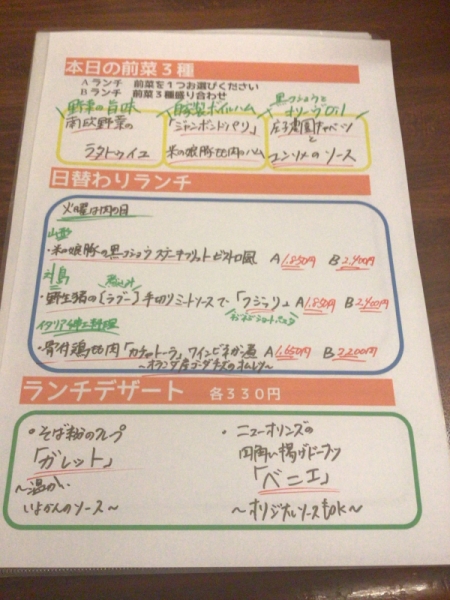 本日の前菜３種
Ａランチ 前菜を１つお選びください
Ｂランチ 前菜３種盛り合わせ
野菜の旨味
南欧野菜の
ラタトゥイユ
自家製ボイルハム
「ジャンボンドゥパリ」
米の娘豚モモ肉のハム
黒コショウと
オリーブOil
庄子農園キャベツ
と
コンソメのソース
日替わりランチ
火曜は肉の日
山形
・米の娘豚の黒コショウ ステークフリット ビストロ風 A 1.850円 B 2.400円
煮込み
・野生猪の[ラグー]手切りミートソースで「フジッリ」 A 1.850円 B 2.400円
ねじねじショートパスタ
イタリア郷土料理
・骨付鶏モモ肉「カチャトーラ」ワインビネガー煮 A 1.650円 B 2.200円
〜オランダ産ゴーダチーズのオムレツ〜
ランチデザート 各３３０円
・そば粉のクレープ
「ガレット」
〜温かい
いよかんのソース〜
・ニューオリンズの
四角い揚げドーナツ
「ベニエ」
〜オリジナルソースもOK〜